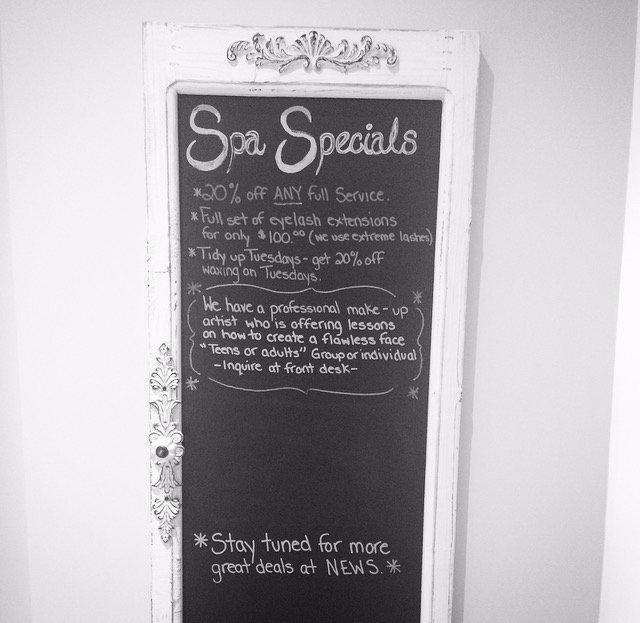 Spa Specials
*20% off ANY full Service.
*Full set of eyelash extensions
for only $100.00 (we use extreme lashes)
*Tidy up Tuesdays - get 20% off
waxing on Tuesdays.
We have a professional make-up
artist who is offering lessons
on how to create a flawless face
"Teens or adults" Group or individual
-Inquire at front desk-
*Stay tuned for more
great deals at NEWS.*